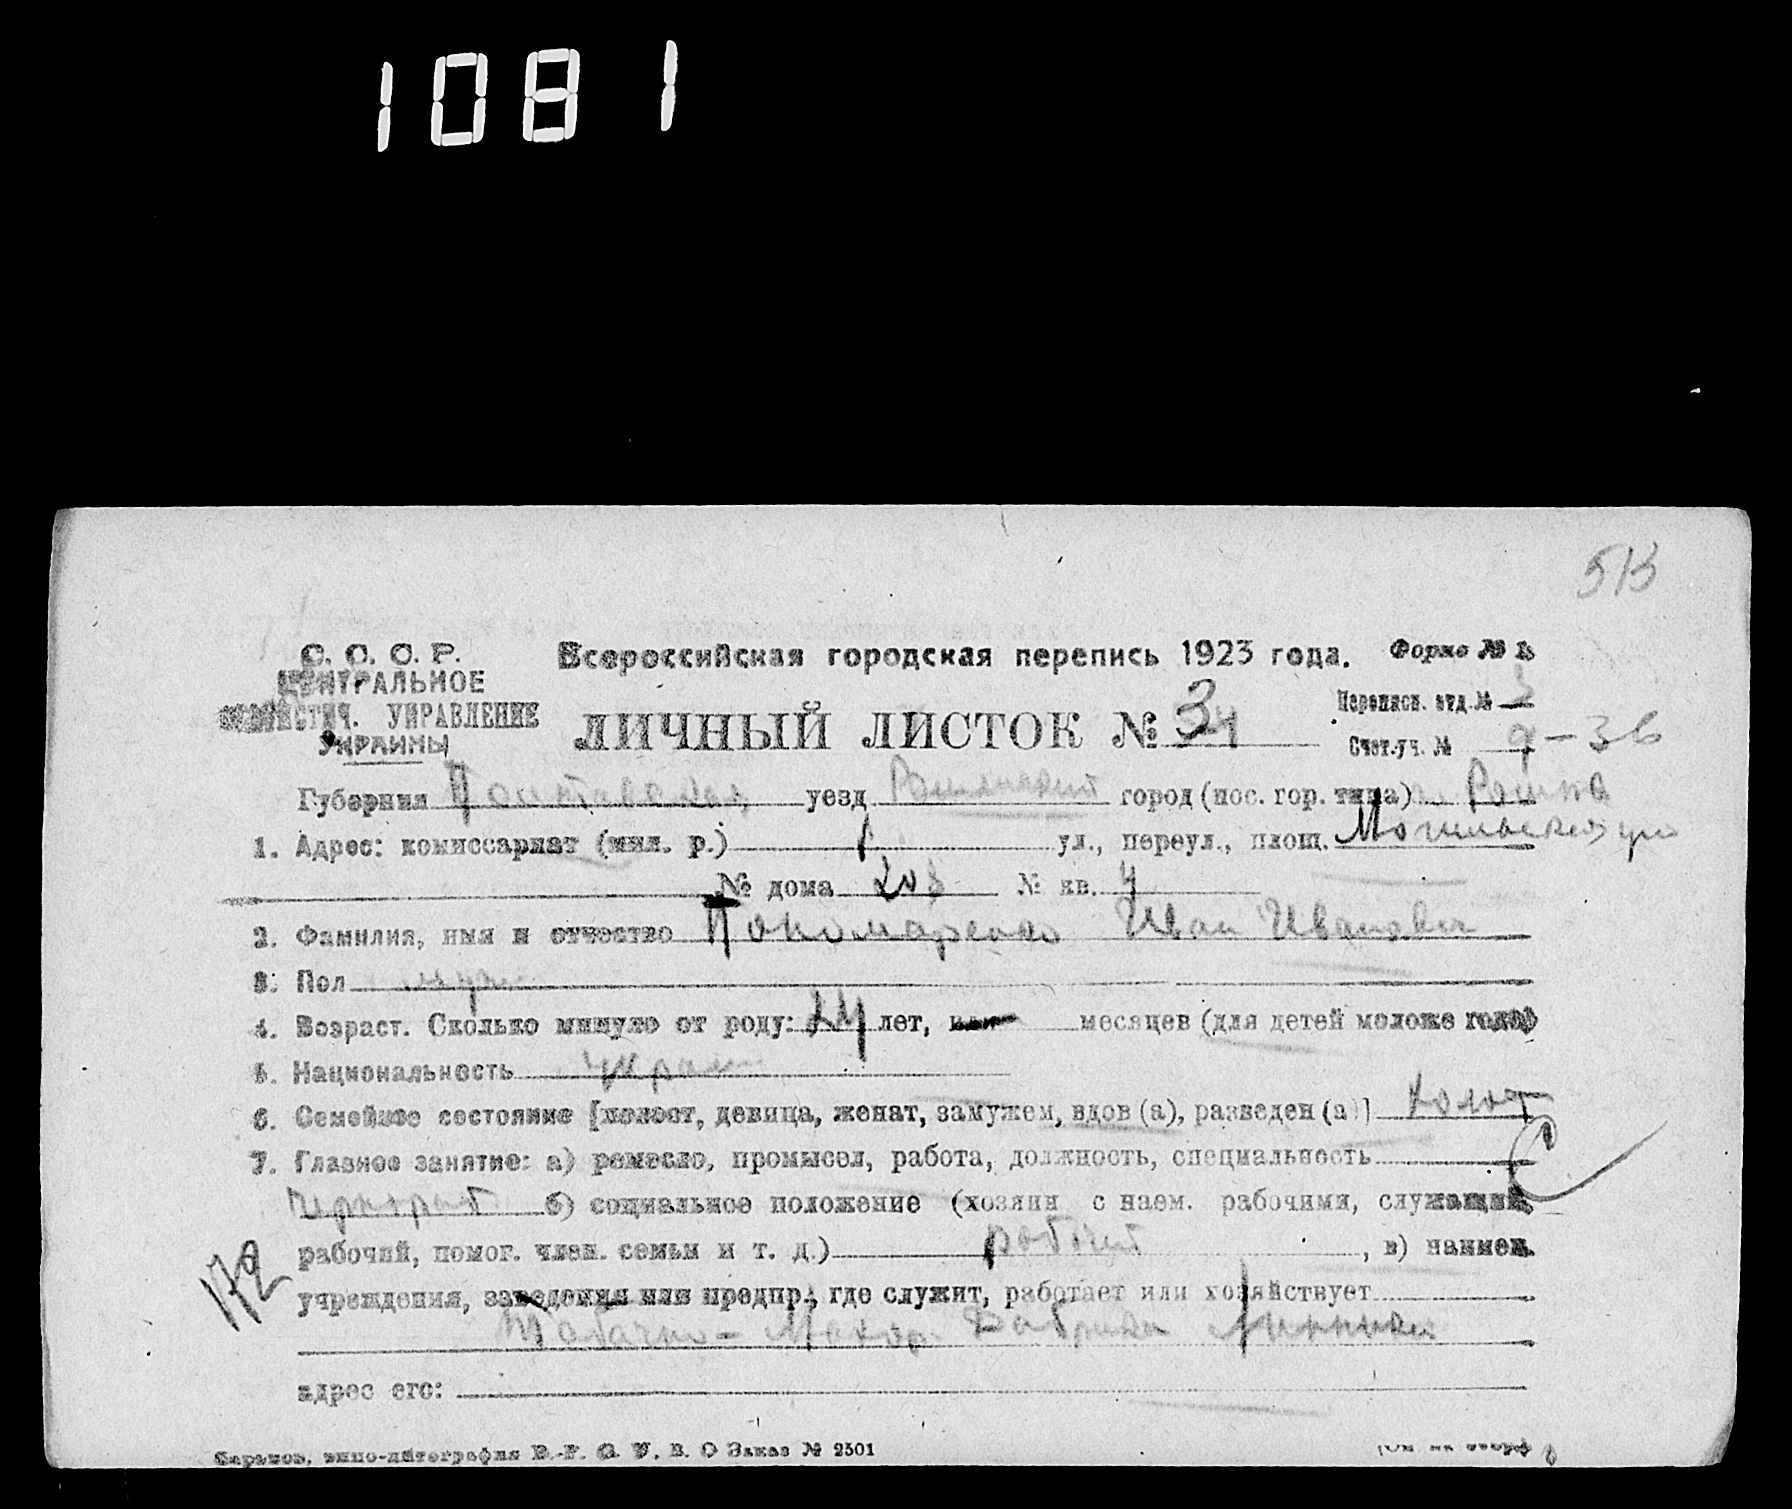 1081
513
С. С. С. Р.
ЦЕНТРАЛЬНОЕ
СТАТИСТИЧ. УПРАВЛЕНИЕ
УКРАИНЫ
Всероссийская городская перепись 1923 года.
Форма № 1.
ЛИЧНЫЙ ЛИСТОК № 34
Переписн. отд. №
Счет.-уч. № 9-36
Губерния Полтавская уезд Роменский город (пос. гор. типа) Ромна
1. Адрес: комиссариат (мил. р.) 1 ул., переул., площ.
№ дома № кв. 4
2. Фамилия, имя и отчество Пономаренко Иван Иванович
3. Пол муж
4. Возраст. Сколько минуло от роду: 24 лет, или месяцев (для детей моложе года)
5. Национальность украин
6. Семейное состояние [холост, девица, женат, замужем, вдов (а), разведен (а)] холост
7. Главное занятие: а) ремесло, промысел, работа, должность, специальность
чернораб б) социальное положение (хозяин с наем. рабочими, служащий,
рабочий, помог. член. семьи и т. д.) рабочий, в) наимен.
172
учреждения, заведения или предпр., где служит, работает или хозяйствует
Табачно-Махор. Фабрика
адрес его:
Харьков, типо-литография Заказ № 2501